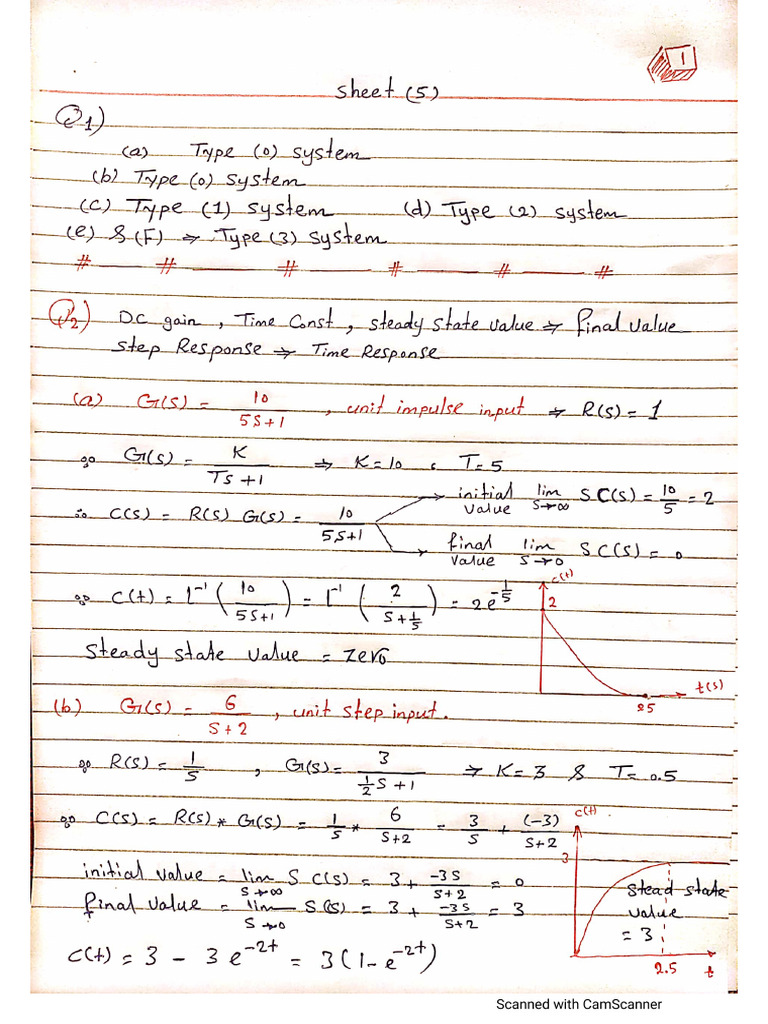 1
Sheet (5)
Q1)
(a) Type (0) system
(b) Type (0) system
(c) Type (1) system (d) Type (2) system
(e) & (F) → Type (3) system
# # # # # #
Q2) DC gain , Time Const , steady state value → final value
Step Response → Time Response
(a) G(s) = 10 / 5S+1 , unit impulse input → R(s) = 1
∵ G(s) = K / Ts+1 ⇒ K=10 , T=5
∴ C(s) = R(s) G(s) = 10 / 5S+1
initial value lim S→∞ S C(s) = 10/5 = 2
final value lim S→0 S C(s) = 0
∵ C(t) = L⁻¹ ( 10 / 5S+1 ) = L⁻¹ ( 2 / S+1/5 ) = 2e^-1/5
c(t)
2
Steady state value = zero
t(s)
25
(b) G(s) = 6 / S+2 , unit step input.
∵ R(s) = 1/S , G(s) = 3 / ½S+1 ⇒ K=3 & T=0.5
∵ C(s) = R(s) * G(s) = 1/S * 6/S+2 = 3/S + (-3)/S+2
c(t)
3
initial value = lim S→∞ S C(s) = 3 + -3S/S+2 = 0
final value = lim S→0 S(s) = 3 + -3S/S+2 = 3
Stead state
value
= 3
C(t) = 3 - 3e^-2t = 3(1-e^-2t)
2.5 t
Scanned with CamScanner